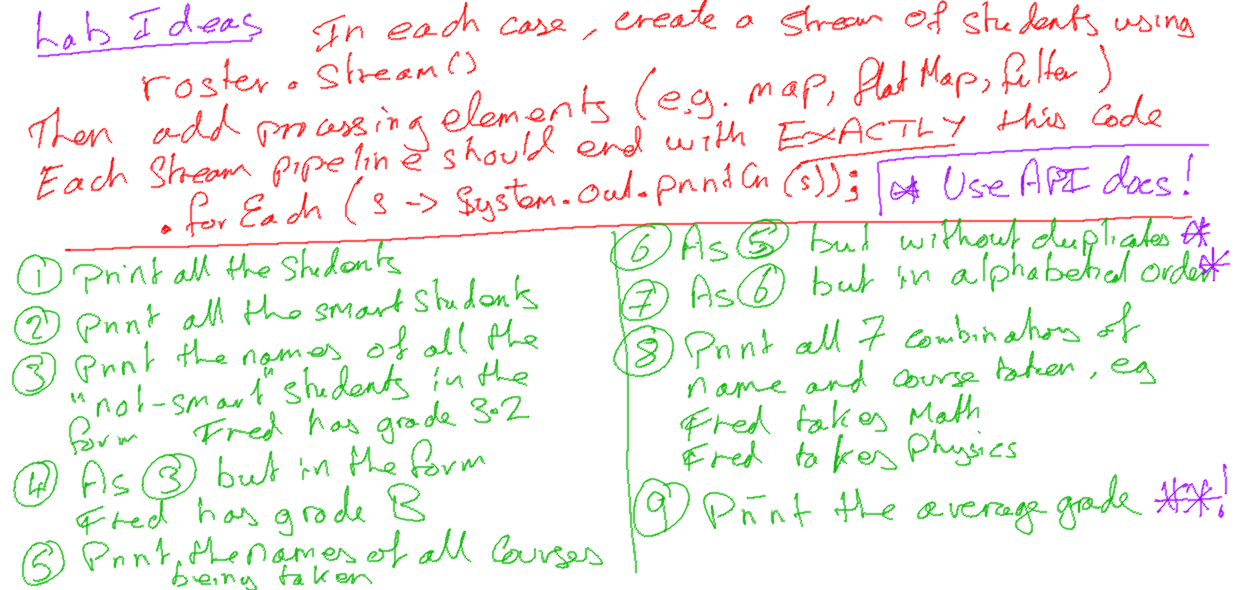 Lab Ideas In each case, create a stream of students using
roster.stream()
Then add processing elements (e.g. map, flatMap, filter)
Each Stream pipeline should end with EXACTLY this code
.forEach(s -> System.out.println(s)); * Use API docs!
① Print all the Students
② Print all the smart Students
③ Print the names of all the
"not-smart" students in the
form Fred has grade 3.2
④ As ③ but in the form
Fred has grade B
⑤ Print the names of all courses
being taken
⑥ As ⑤ but without duplicates *
⑦ As ⑥ but in alphabetical order *
⑧ Print all 7 combinations of
name and course taken, eg
Fred takes Math
Fred takes Physics
⑨ Print the average grade **!